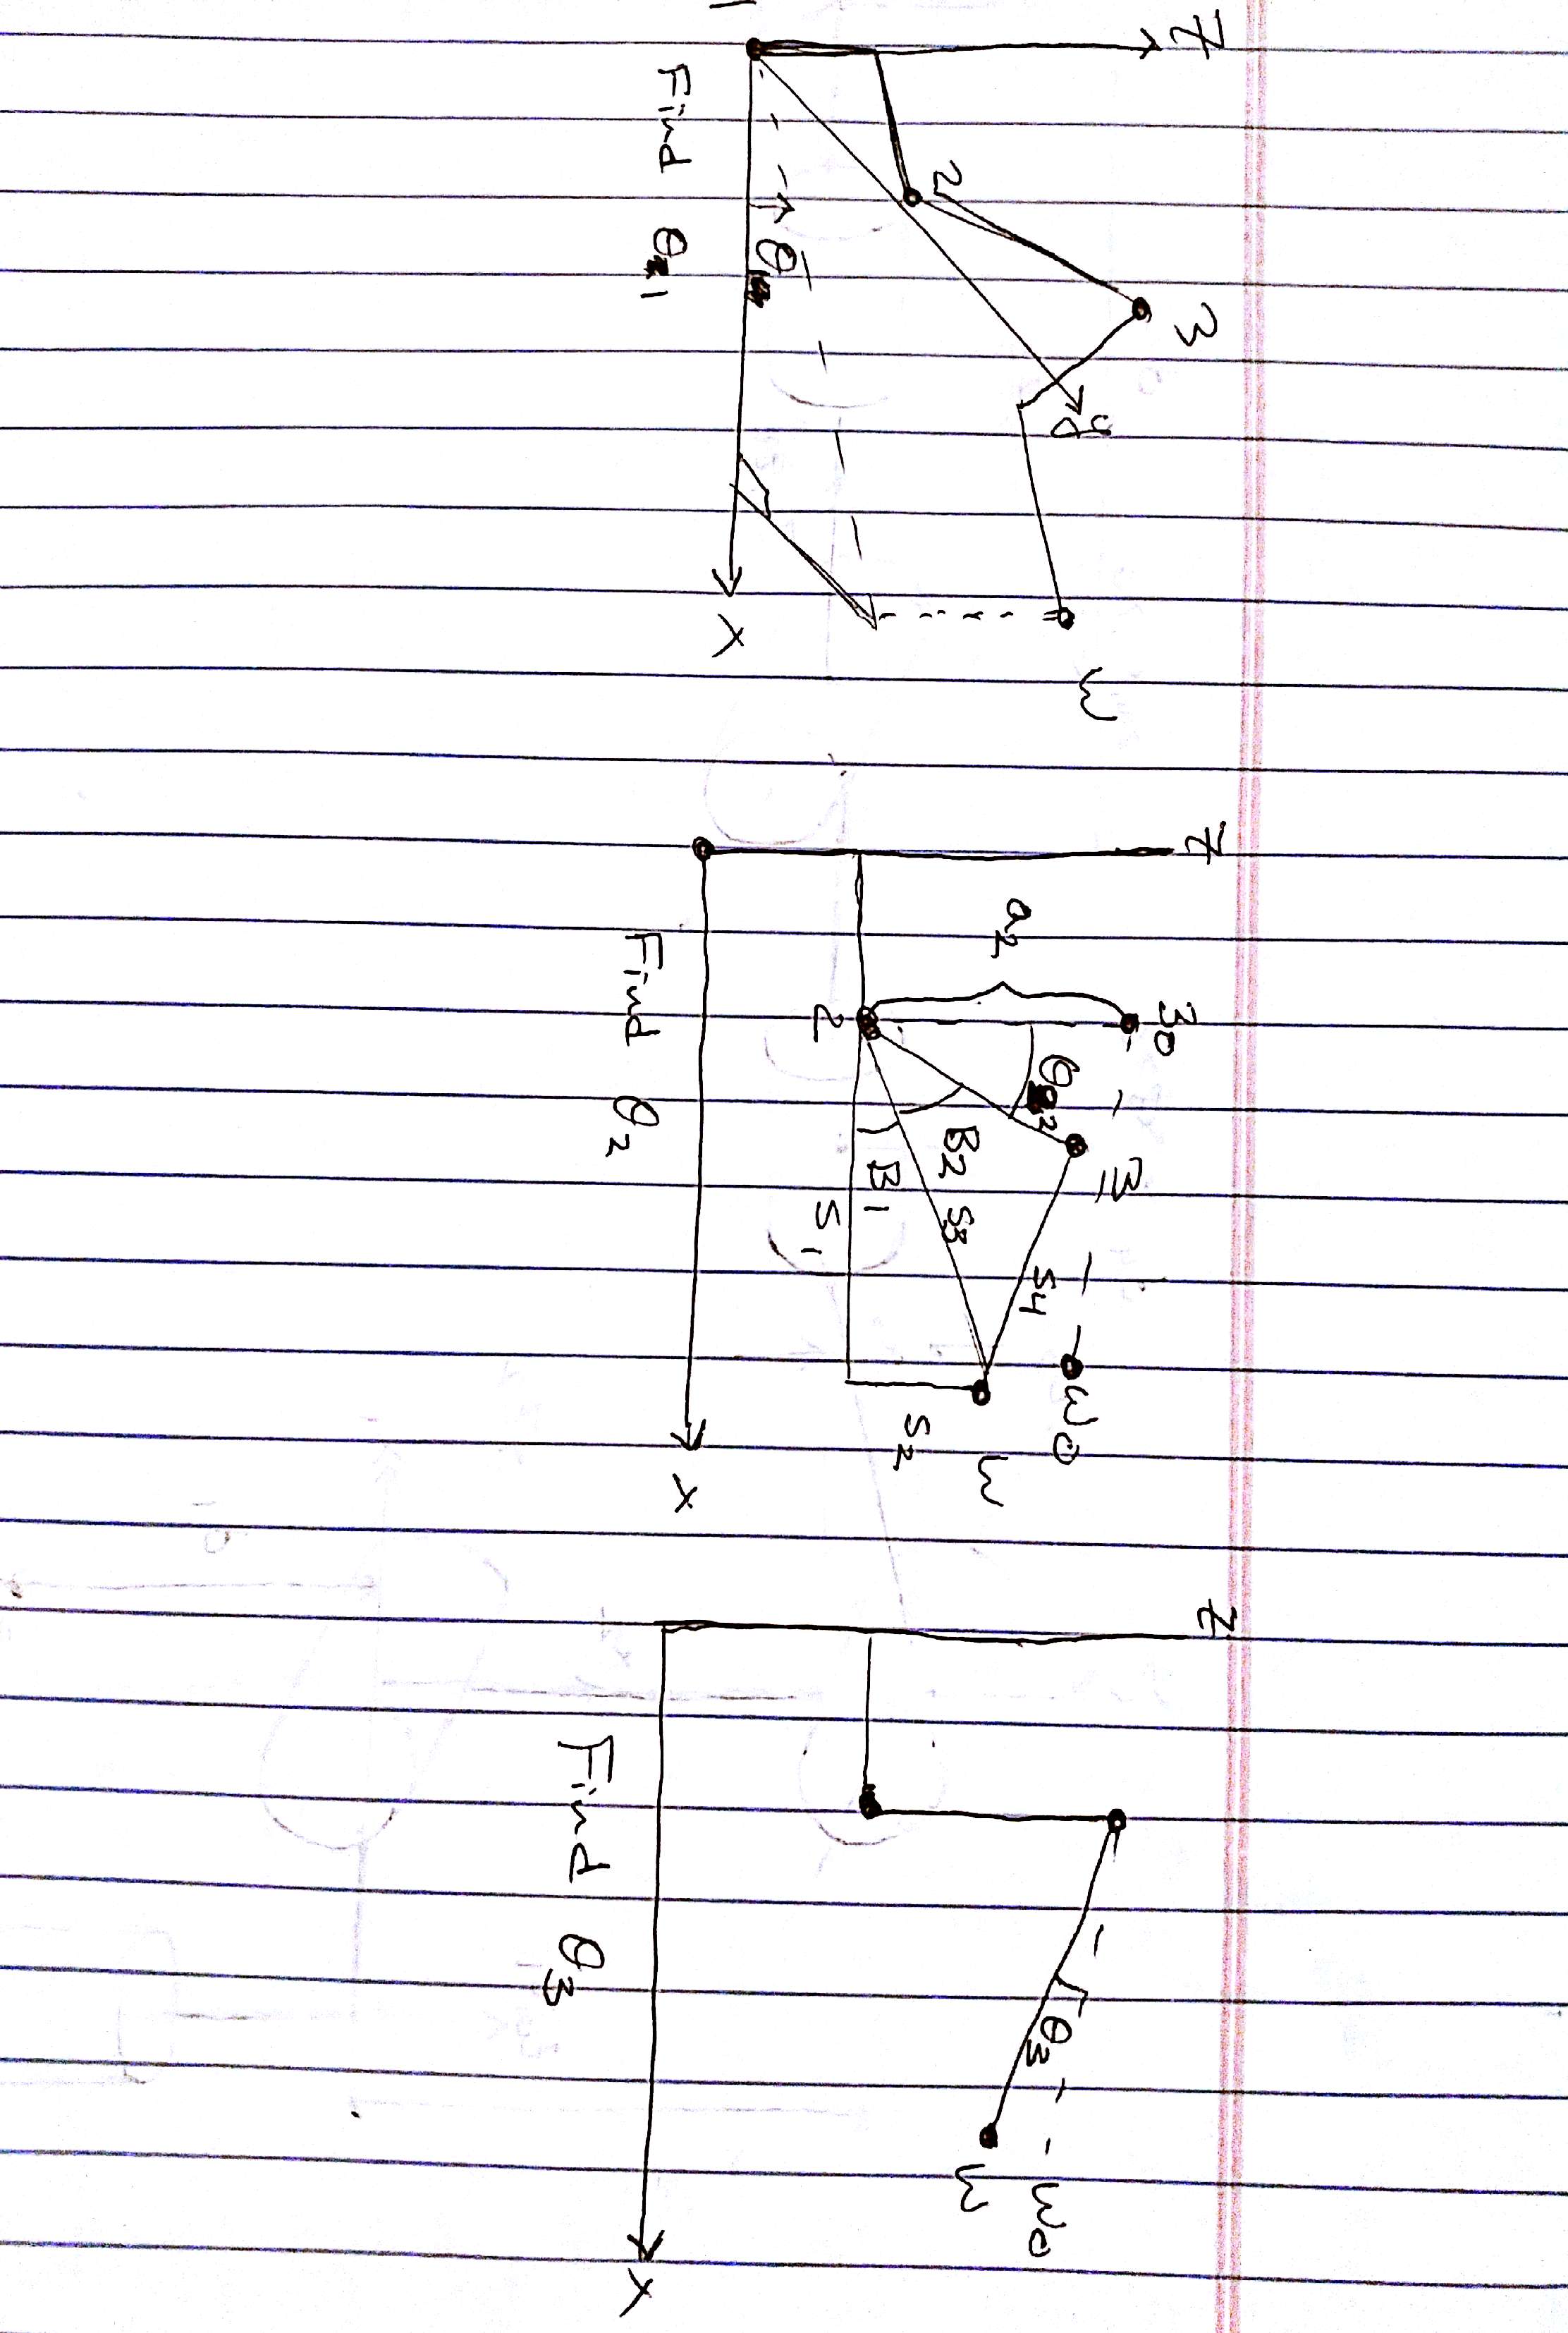 Z
3
y
W
2
θ
1
X
Find θ1
Z
30
3
W0
θ2
S4
a2
W
B2 S3
S2
B1
2
S1
X
Find θ2
Z
θ3
W0
W
X
Find θ3